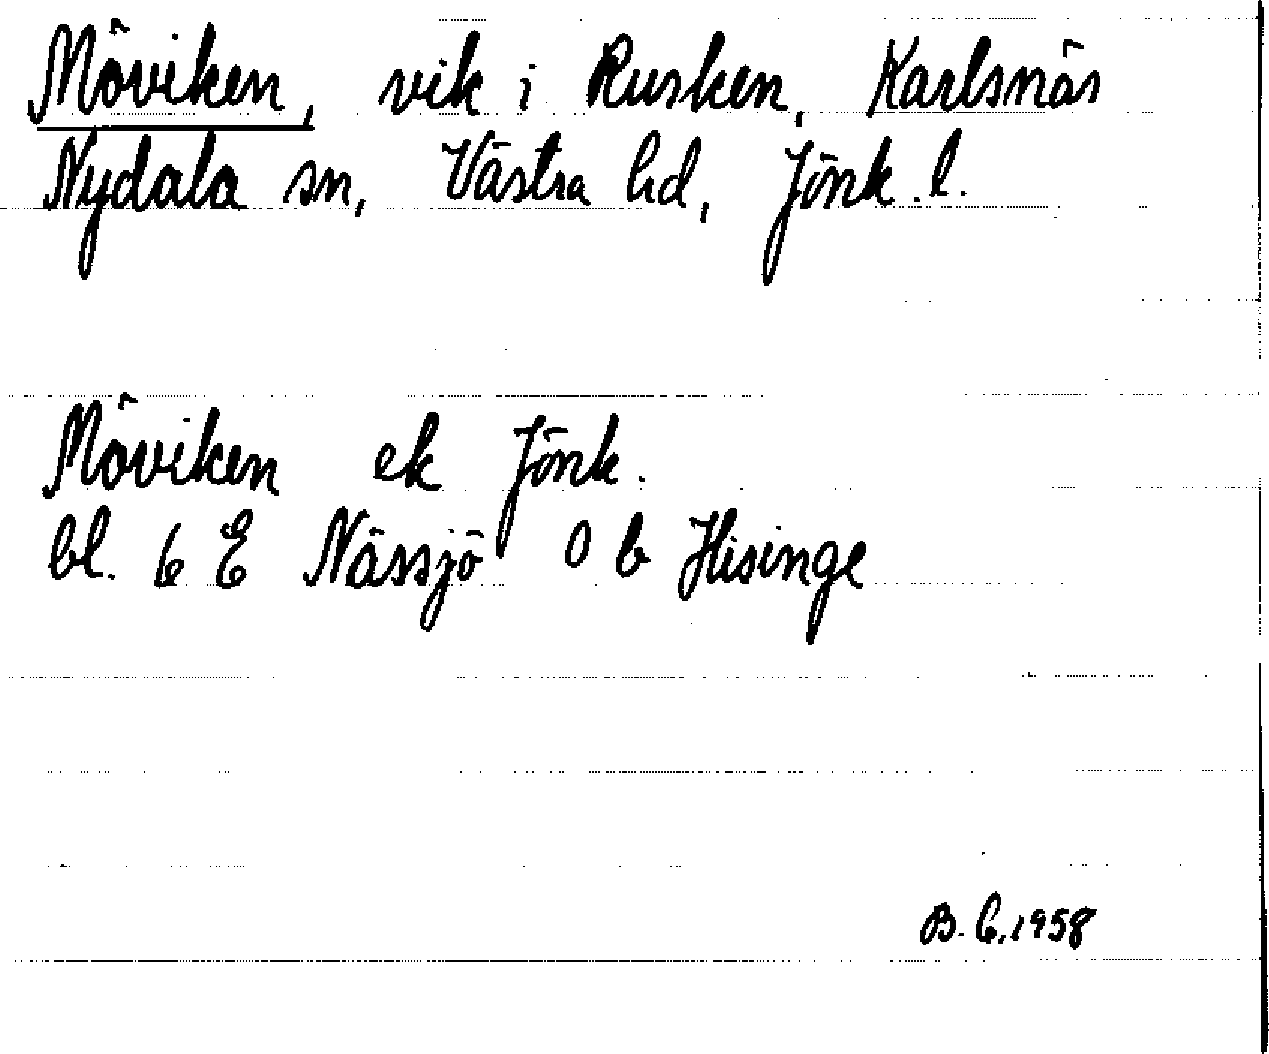 Möviken, vik i Rusken, Karlsnäs
Nydala sn, Västra hd, Jönk. l.
Möviken ek Jönk.
bl. 6 E Nässjö 0 b Hisinge
B. C. 1958